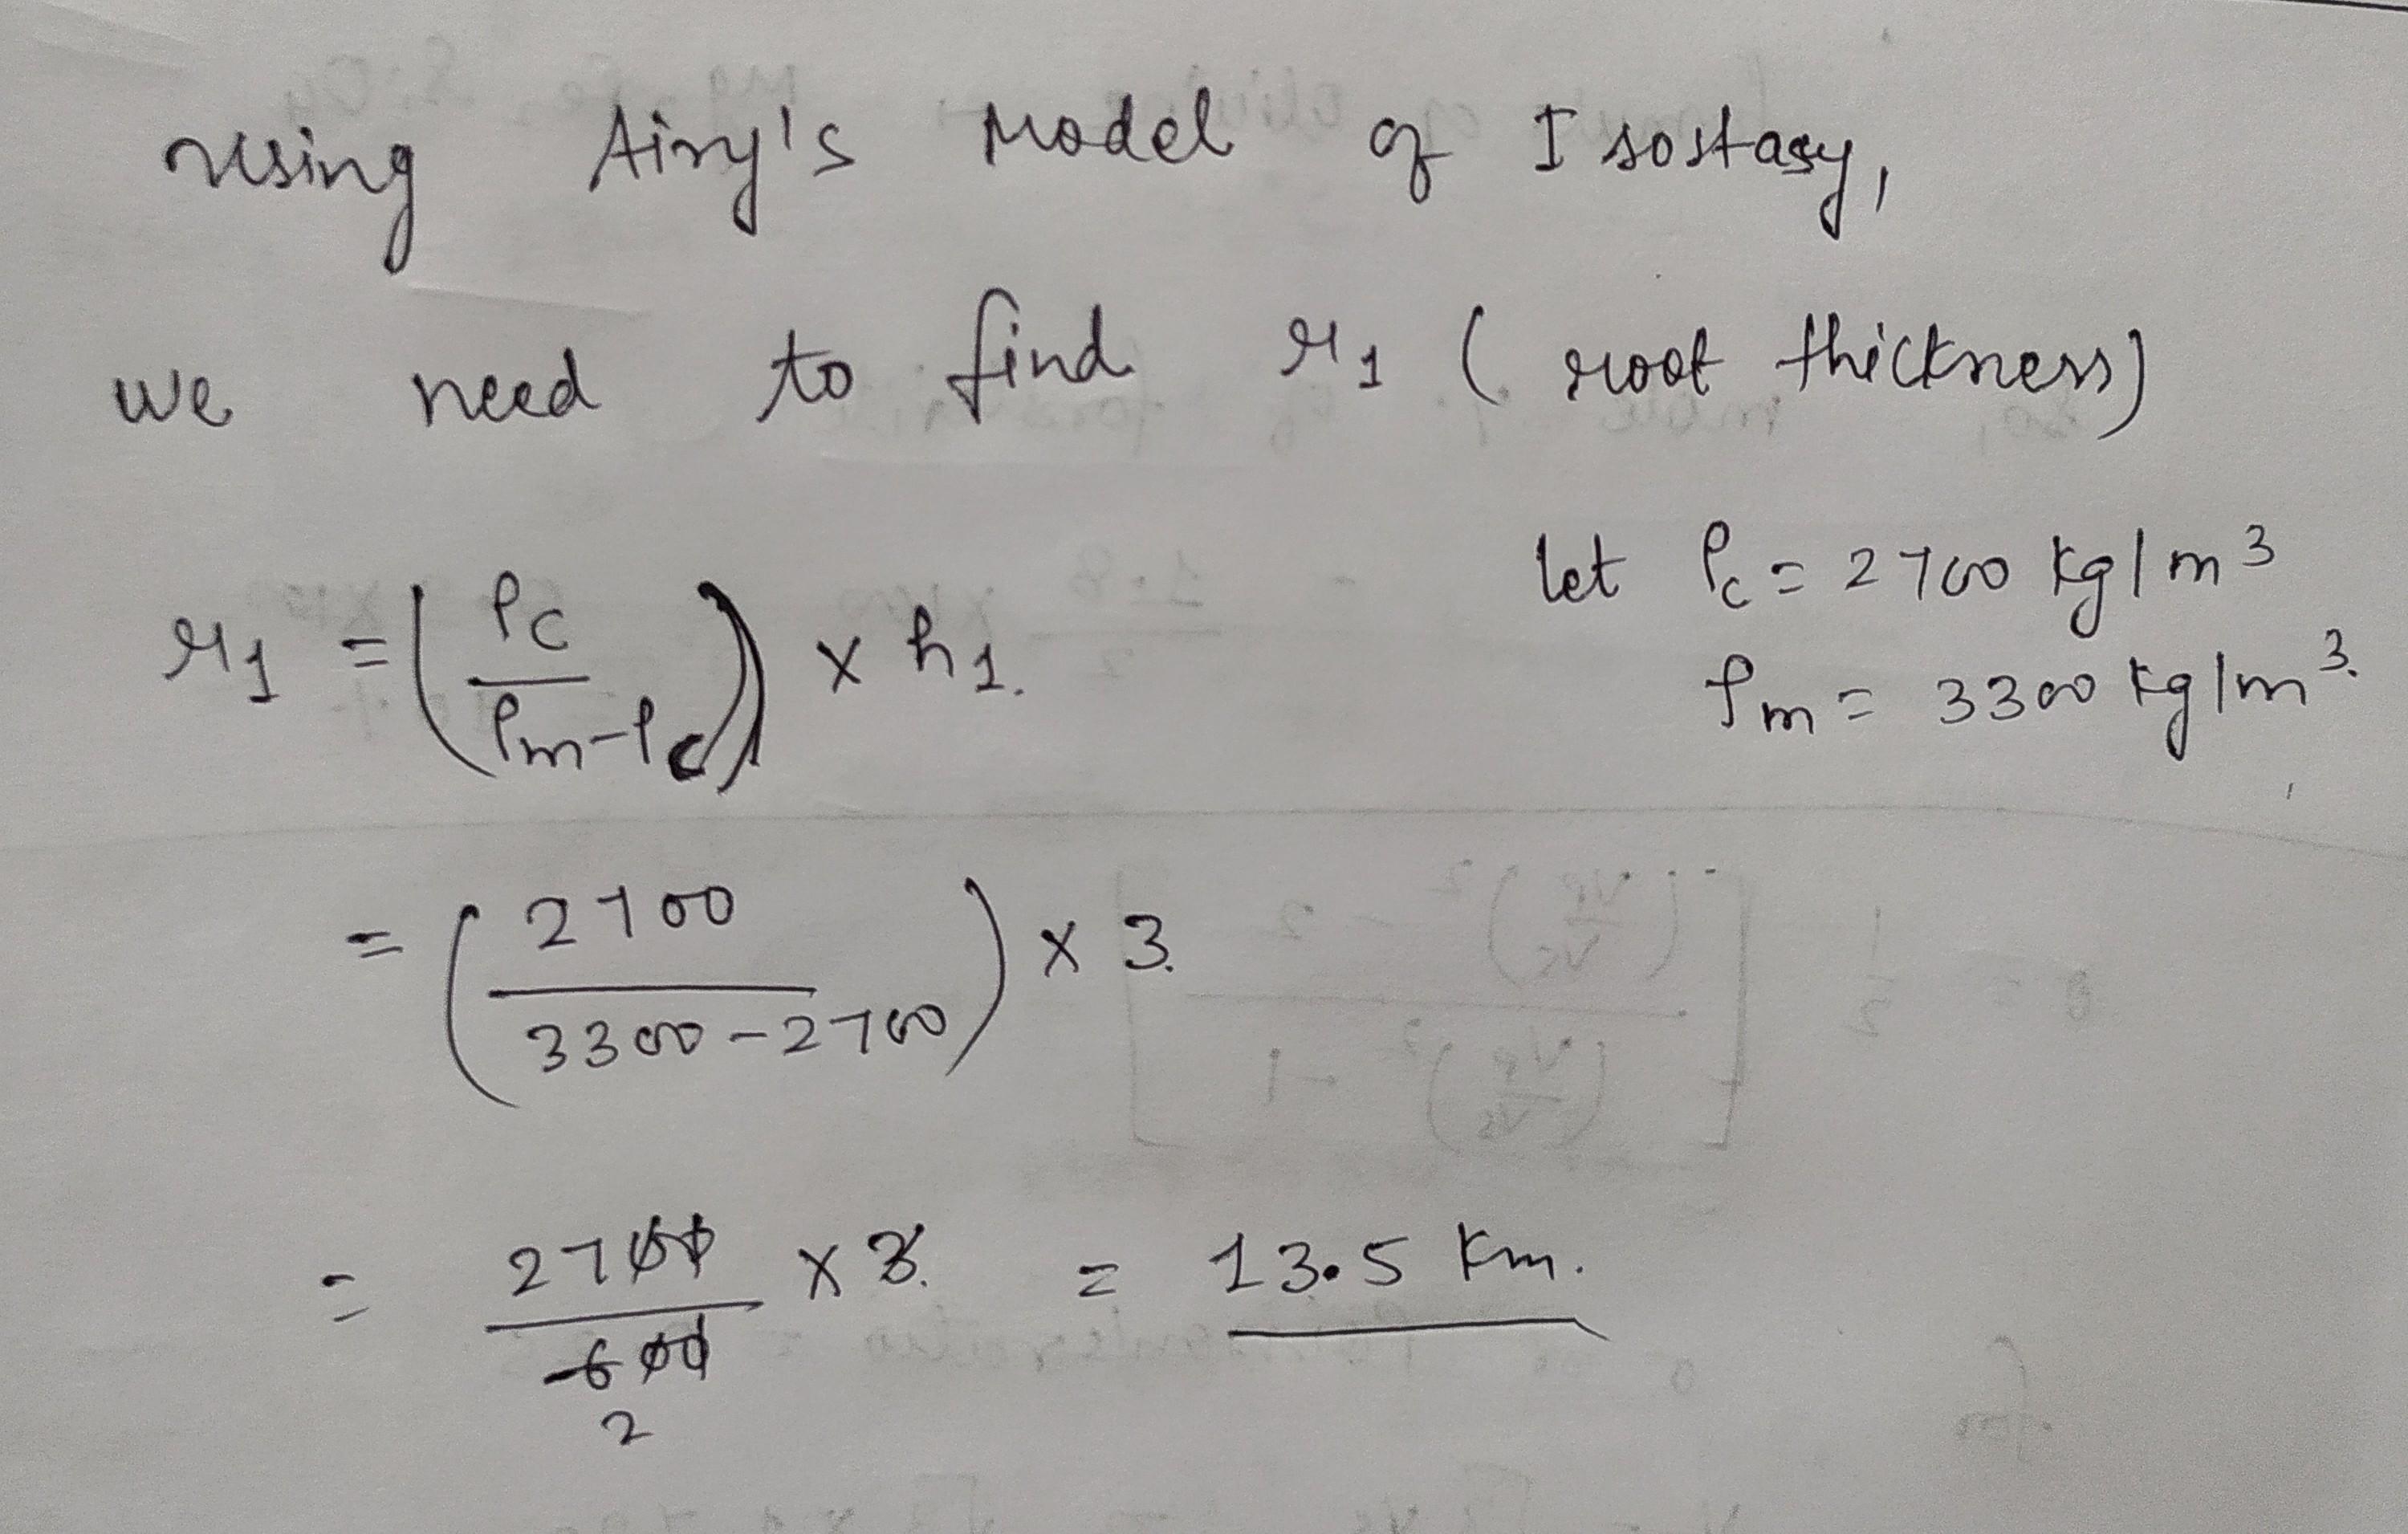 using Airy's Model of Isostasy,
we need to find r1 ( root thickness)
let ρc = 2700 kg/m³
r1 = (ρc / ρm-ρc) x h1.
ρm = 3300 kg/m³.
= (2700 / 3300-2700) x 3.
= 2700 / 600 x 3. = 13.5 Km.
2